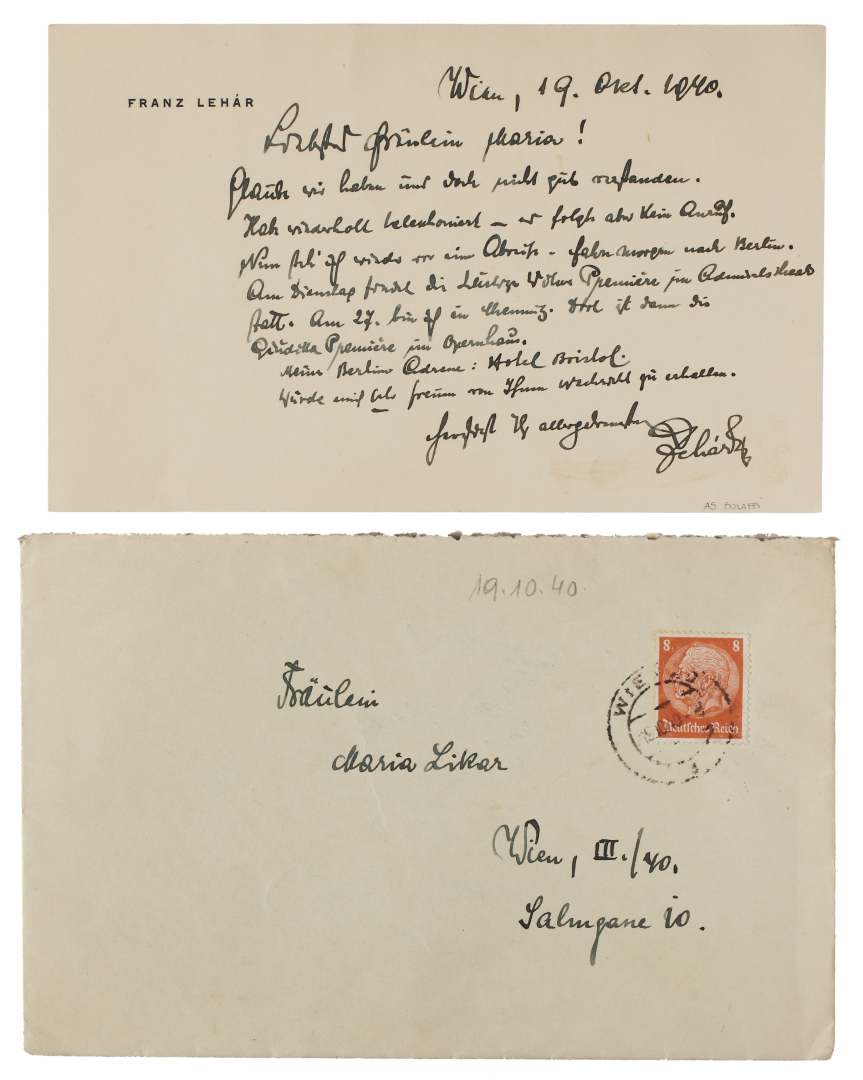 FRANZ LEHÁR
Wien, 19. Okt. 1940.
Liebstes Fräulein Maria!
Glaube wir haben uns doch nicht gut verstanden.
Hab wiederholt telephoniert – es folgte aber kein Anruf.
Nun steh' ich wieder vor einer Abreise – fahre morgen nach Berlin.
Am Dienstag findet die Lustige Witwe Première im Admiralspalast
statt. Am 27. bin ich in Chemnitz. Dort ist dann die
Giuditta Première im Opernhaus.
Meine Berliner Adresse: Hotel Bristol.
Würde mich sehr freuen von Ihnen Nachricht zu erhalten.
Herzlichst Ihr allergetreuester
Lehár
AS. BOLAFFI
19.10.40.
8 8
Deutsches Reich
WIEN
Fräulein
Maria Likar
Wien, III./40.
Salmgasse 10.